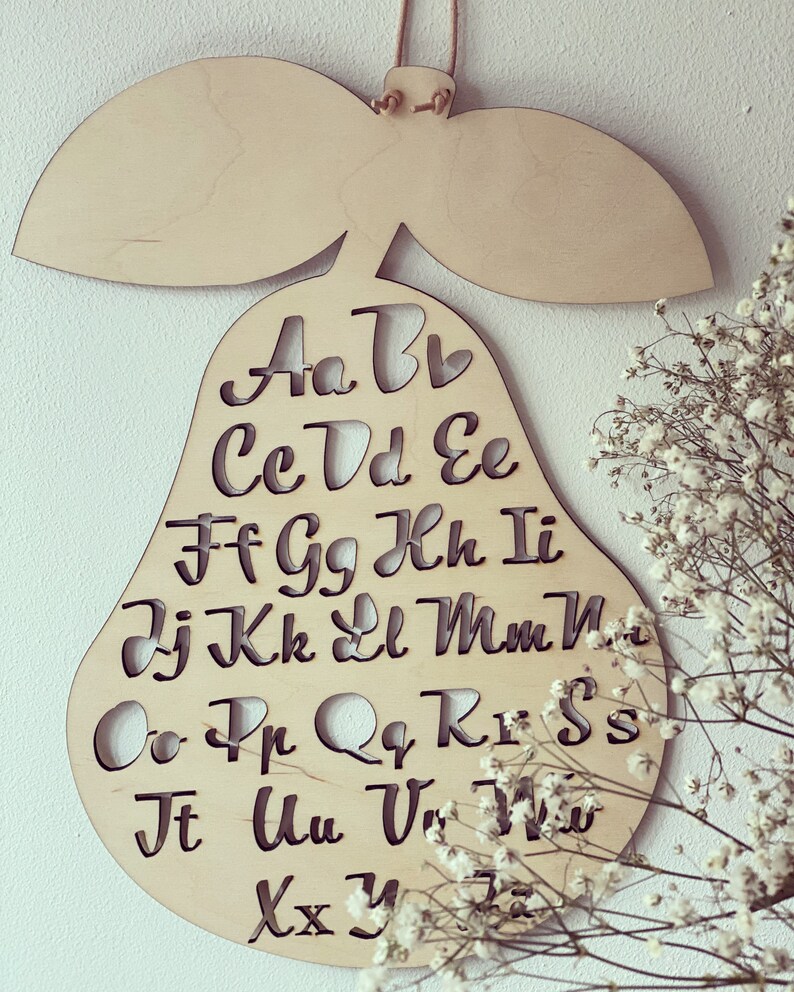 Aa Bb
Cc Dd Ee
Ff Gg Hh Ii
Jj Kk Ll Mm Nn
Oo Pp Qq Rr Ss
Tt Uu Vv Ww
Xx Y Zz